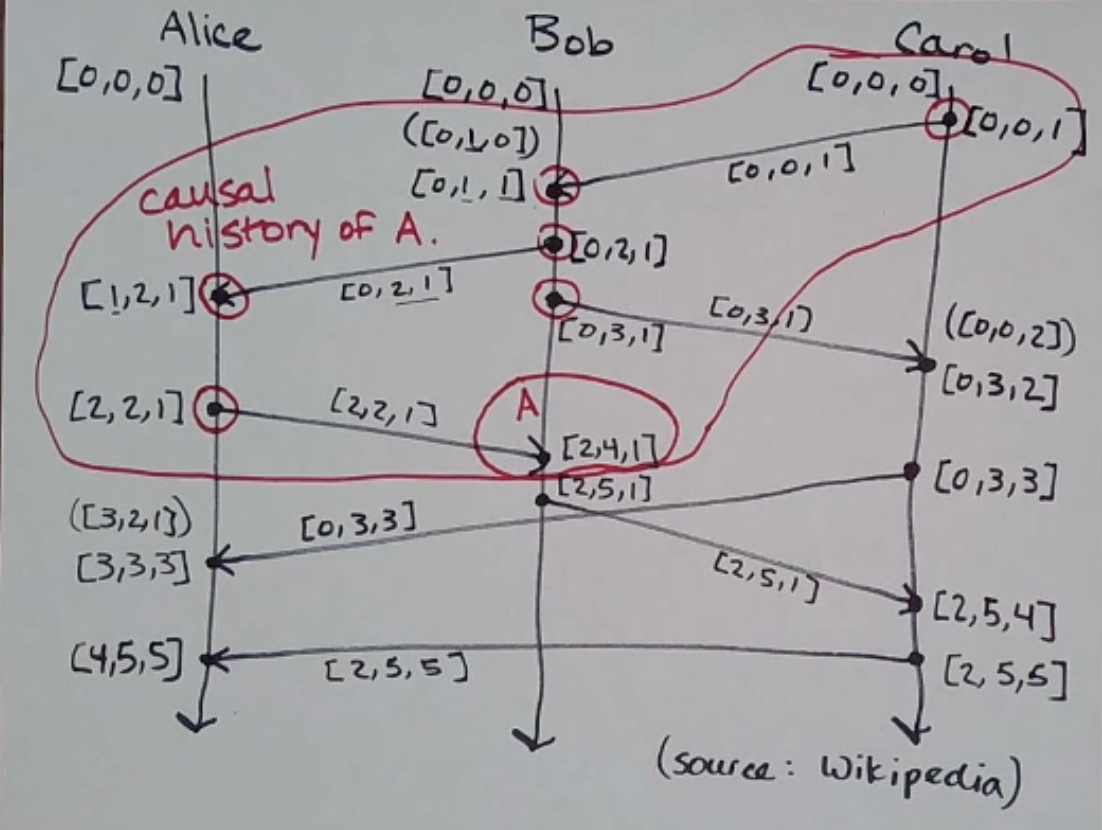 Alice Bob Carol
[0,0,0] [0,0,0] [0,0,0]
([0,1,0]) [0,0,1]
[0,1,1] [0,0,1]
causal
history of A.
[0,2,1]
[1,2,1] [0,2,1] [0,3,1] ([0,0,2])
[0,3,1]
[0,3,2]
[2,2,1] [2,2,1] A
[2,4,1]
[2,5,1] [0,3,3]
([3,2,1]) [0,3,3]
[3,3,3] [2,5,1]
[2,5,4]
[4,5,5] [2,5,5] [2,5,5]
(source: Wikipedia)